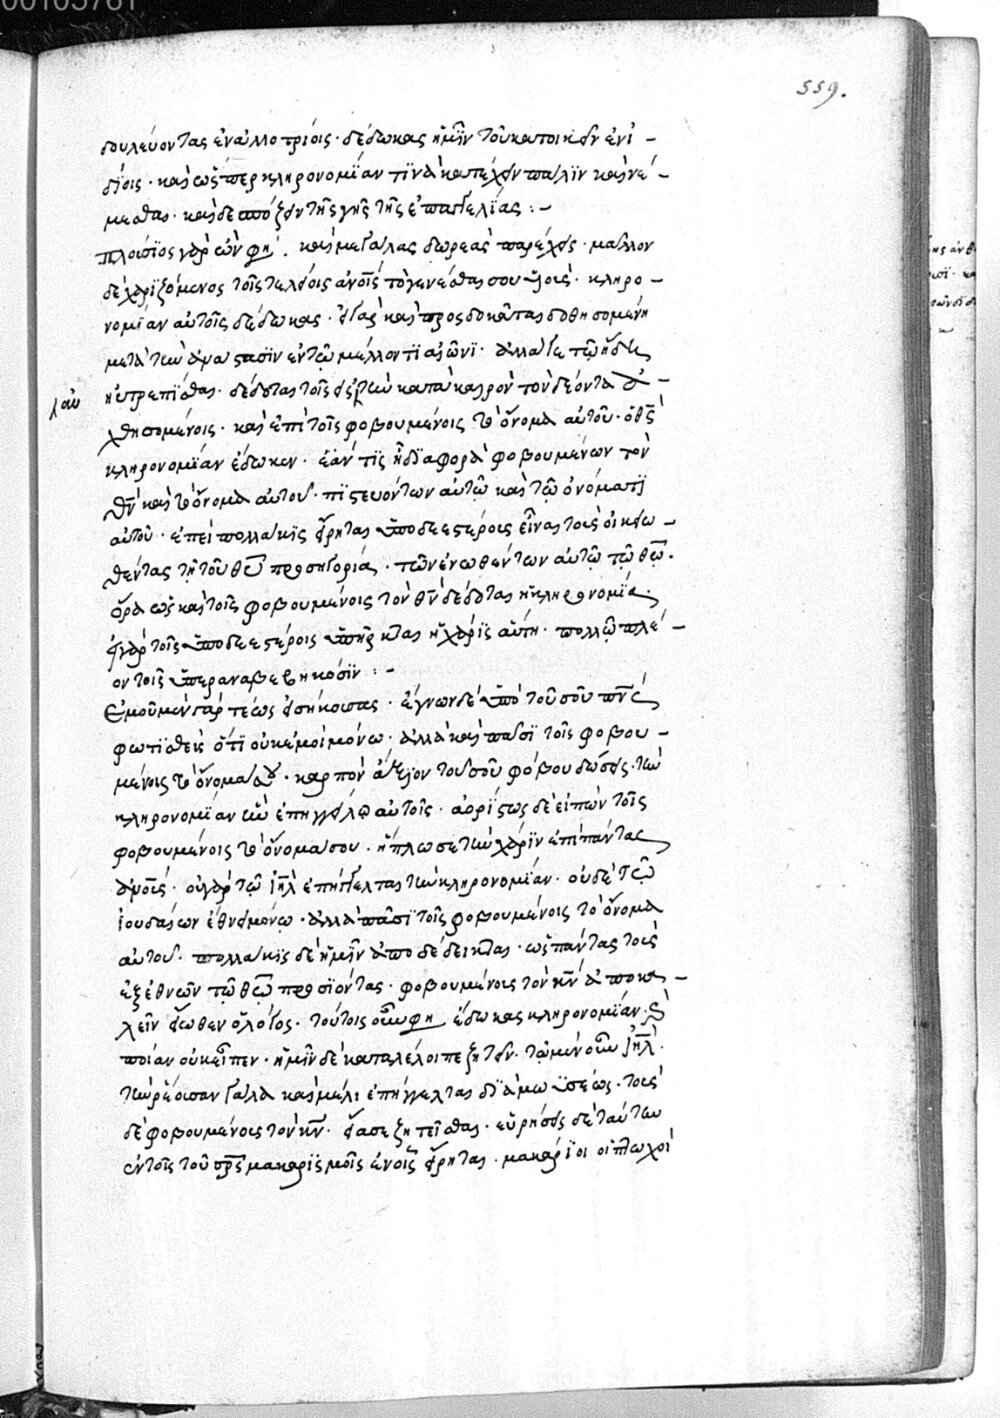 00105761
559.
δουλεύοντας ἐν ἀλλοτρίοις· δέδωκας ἡμῖν τοῦ κατοικεῖν ἐν ἰ-
δίοις· καὶ ὥσπερ κληρονομίαν τινὰ κατέχειν πάλιν καὶ νέ-
μεσθαι· καὶ δεσπόζειν τῆς γῆς τῆς ἐπαγγελίας:-
Πλούσιος γὰρ ὢν φη· καὶ μεγάλας δωρεὰς παρέχεις· μᾶλλον
δὲ χαριζόμενος τοῖς τελείοις ἀνοις τὸ γενέσθαι σου υἱοὺς· κληρο-
νομίαν αὐτοῖς δέδωκας· εἶτα καὶ προσδοκᾶται δοθησομένη
μετὰ τὴν ἀνάστασιν ἐν τῷ μέλλοντι αἰῶνι· ἀλλά γε τῷ ἤδη
ηὐτρεπίσθαι· δέδοται τοῖς κατὰ καιρὸν τὸν δέοντα
λαυ
χθησομένοις· καὶ ἐπὶ τοῖς φοβουμένοις τὸ ὄνομα αὐτοῦ· ὁ θς
κληρονομίαν ἔδωκεν· ἐάν τις ᾖ διαφορὰ φοβουμένων τὸν
θν καὶ τὸ ὄνομα αὐτοῦ· πιστευόντων αὐτῷ καὶ τῷ ὀνόματι
αὐτοῦ· ἐπεὶ πολλάκις εἴρηται ὑποδεεστέρους εἶναι τοὺς οἰκειω-
θέντας τῇ τοῦ θυ προσηγορίᾳ· τῶν ἑνωθέντων αὐτῷ τῷ θω·
ὅρα ὡς καὶ τοῖς φοβουμένοις τὸν θν δέδοται ἡ κληρονομία·
εἰ γὰρ τοῖς ὑποδεεστέροις ἡ χάρις αὕτη· πολλῷ πλέ-
ον τοῖς ὑπεραναβεβηκόσιν:-
Ἐμοῦ μὲν γάρ τέως εἰσήκουσας· ἔγνων δὲ ὑπὸ τοῦ σοῦ πνς
φωτισθεὶς ὅτι οὐκ ἐμοὶ μόνω· ἀλλὰ καὶ πᾶσι τοῖς φοβου-
μένοις τὸ ὄνομά σου· καρπὸν ἄξιον τοῦ σοῦ φόβου δώσεις· τὴν
κληρονομίαν ἣν ἐπηγγείλω αὐτοῖς· ἀορίστως δὲ εἰπὼν τοῖς
φοβουμένοις τὸ ὄνομά σου· ἥπλωσε τὴν χάριν ἐπὶ πάντας
ἀνους· οὐ γὰρ τῷ ιηλ ἐπήγγελται τὴν κληρονομίαν· οὐδὲ τῷ
ἰουδαίων ἔθνει μόνῳ· ἀλλὰ πᾶσι τοῖς φοβουμένοις τὸ ὄνομα
αὐτοῦ· πολλάκις δὲ ἡμῖν ἀποδέδεικται· ὡς πάντας τοὺς
ἐξ ἐθνῶν τῷ θω προσιόντας· φοβουμένους τὸν κν ἀποκα-
λεῖν εἴωθεν ὁ λόγος· τούτοις οὖν φη ἔδωκας κληρονομίαν·
ποίαν οὐκ εἶπεν· ἡμῖν δὲ καταλέλοιπε ζητεῖν· τῷ μὲν οὖν ιηλ·
τὴν ῥέουσαν γάλα καὶ μέλι ἐπήγγελται διὰ μωϋσέως· τοὺς
δὲ φοβουμένους τὸν κν· ζητεῖσθαι· εὑρήσεις δὲ ταύτην
ἐν τοῖς τοῦ σρς μακαρισμοῖς ἐν οἷς εἴρηται· μακάριοι οἱ πτωχοὶ